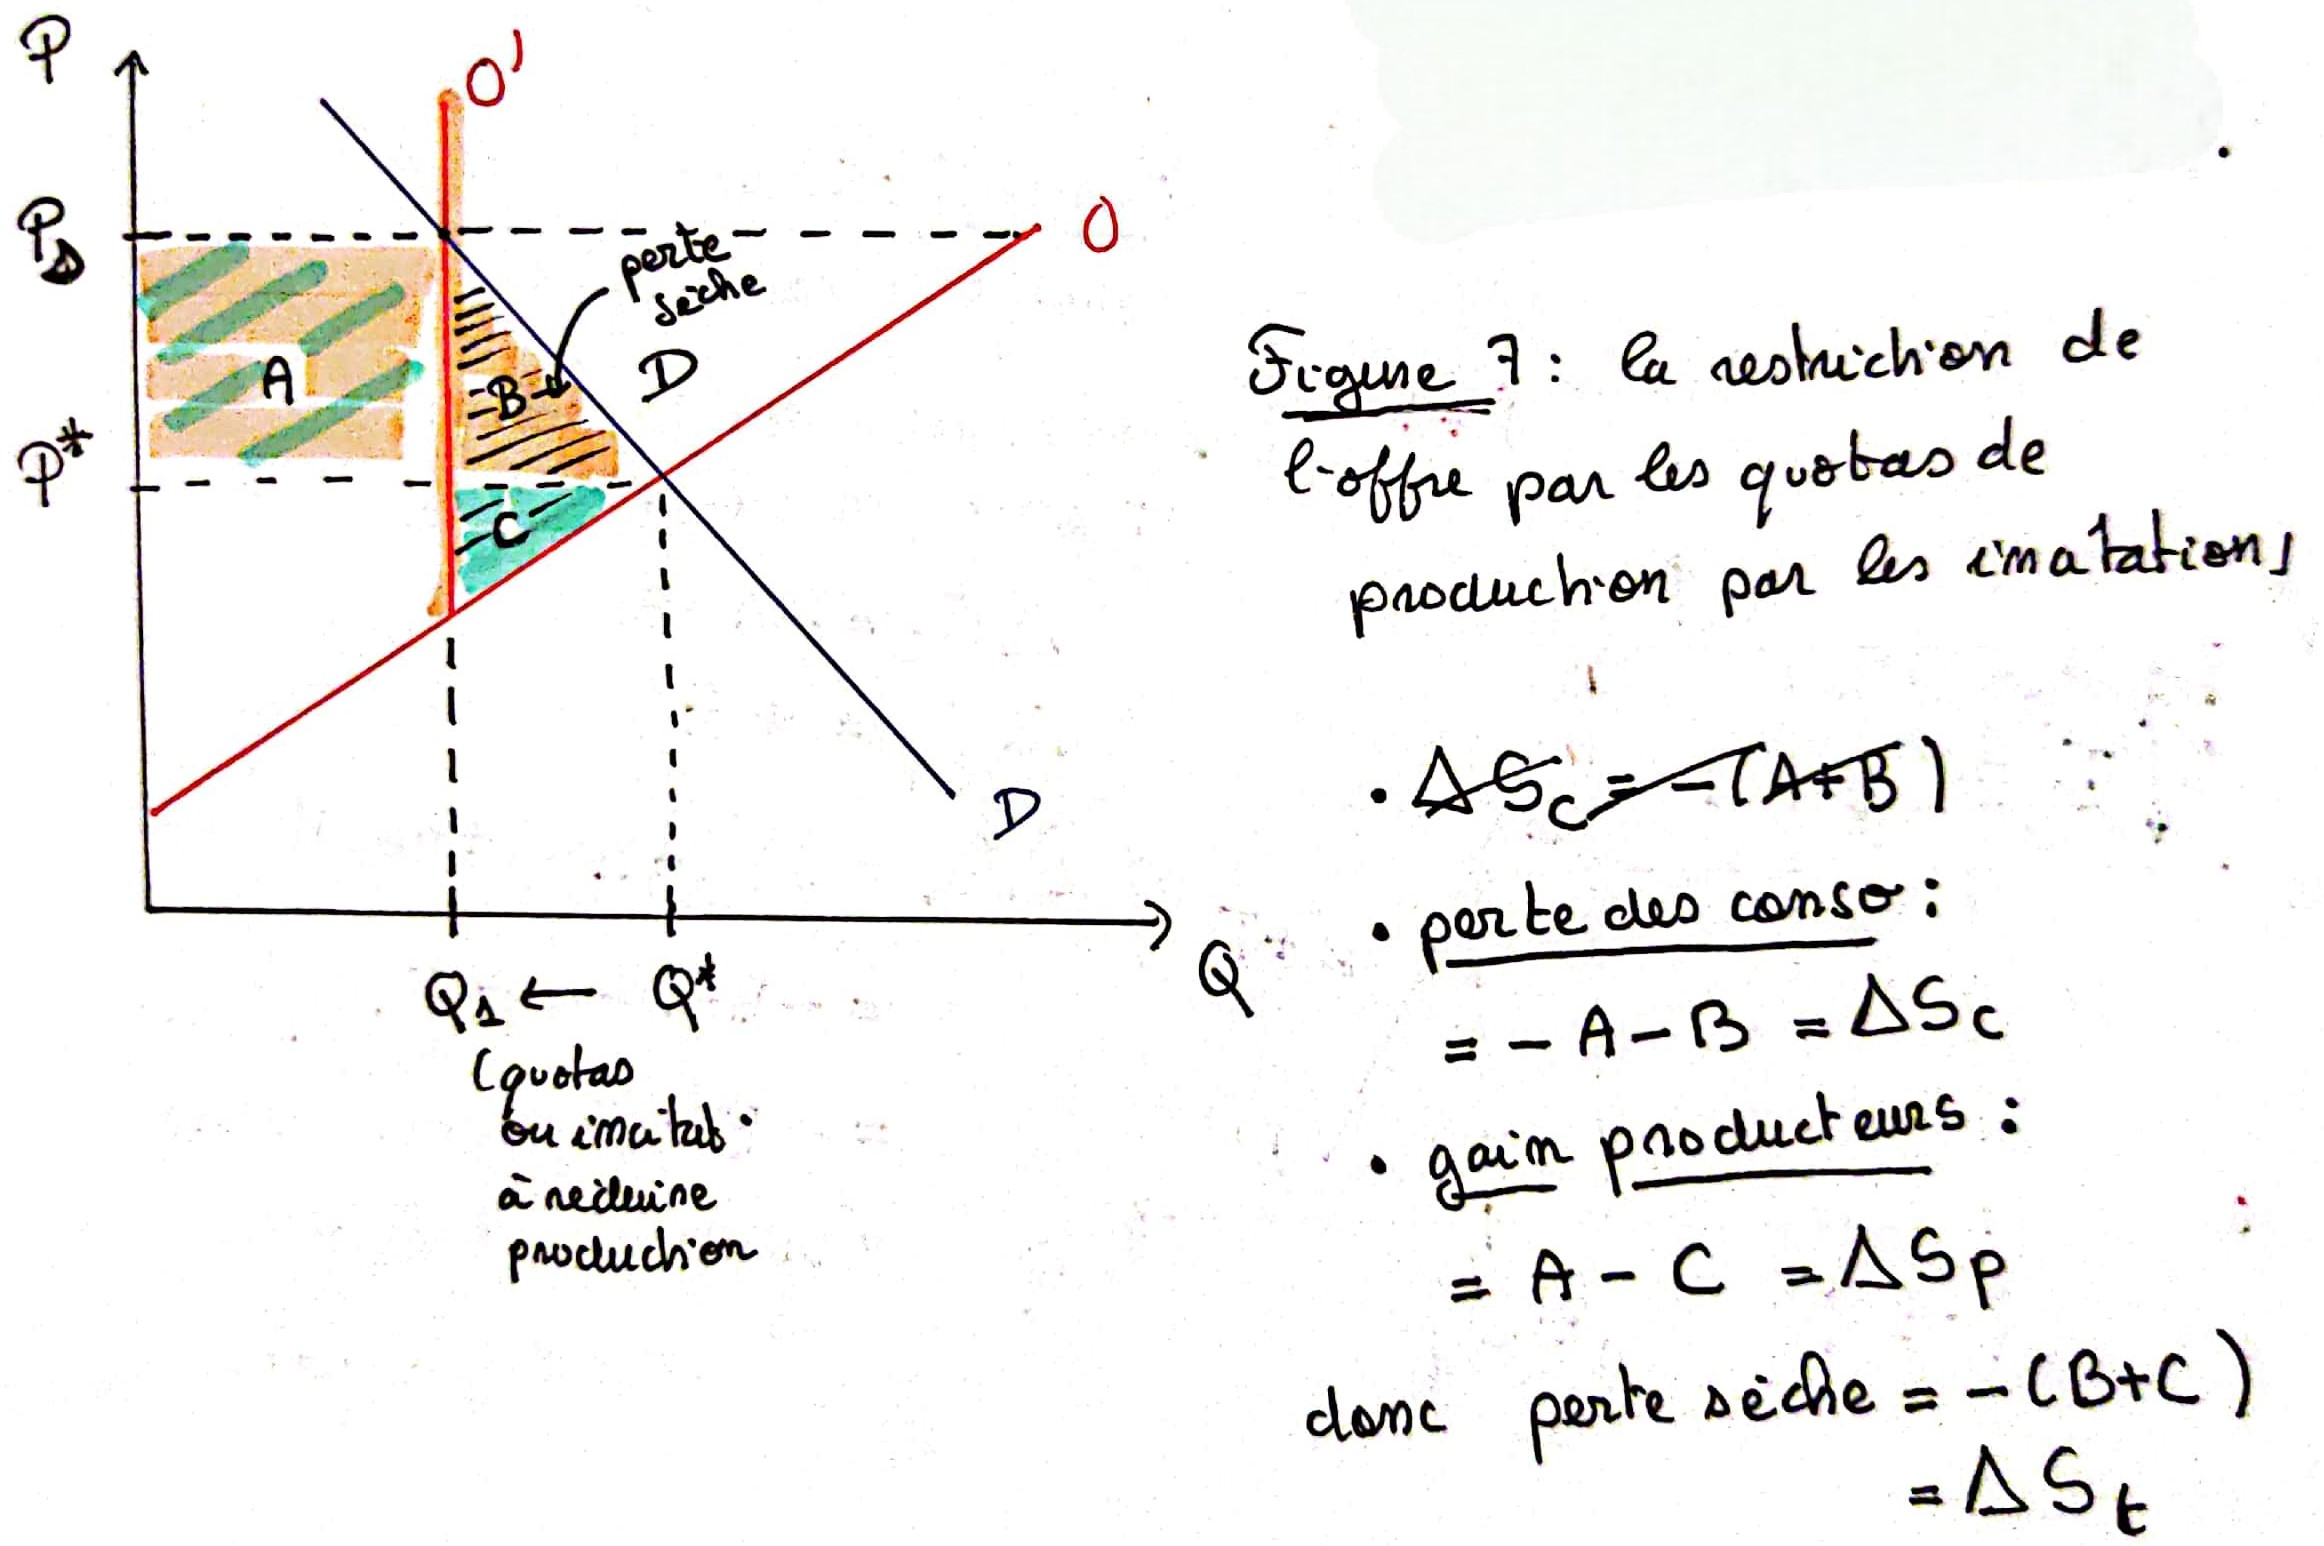 P
O'
Ps
O
perte
sèche
A
B
D
P*
C
D
Q1 ← Q*
Q
(quotas
ou incitat°
à réduire
production
Figure 7 : la restriction de
l'offre par les quotas de
production par les incitations
• ΔSc = -(A+B)
• perte des conso :
= - A - B = ΔSc
• gain producteurs :
= A - C = ΔSp
donc perte sèche = -(B+C)
= ΔSt